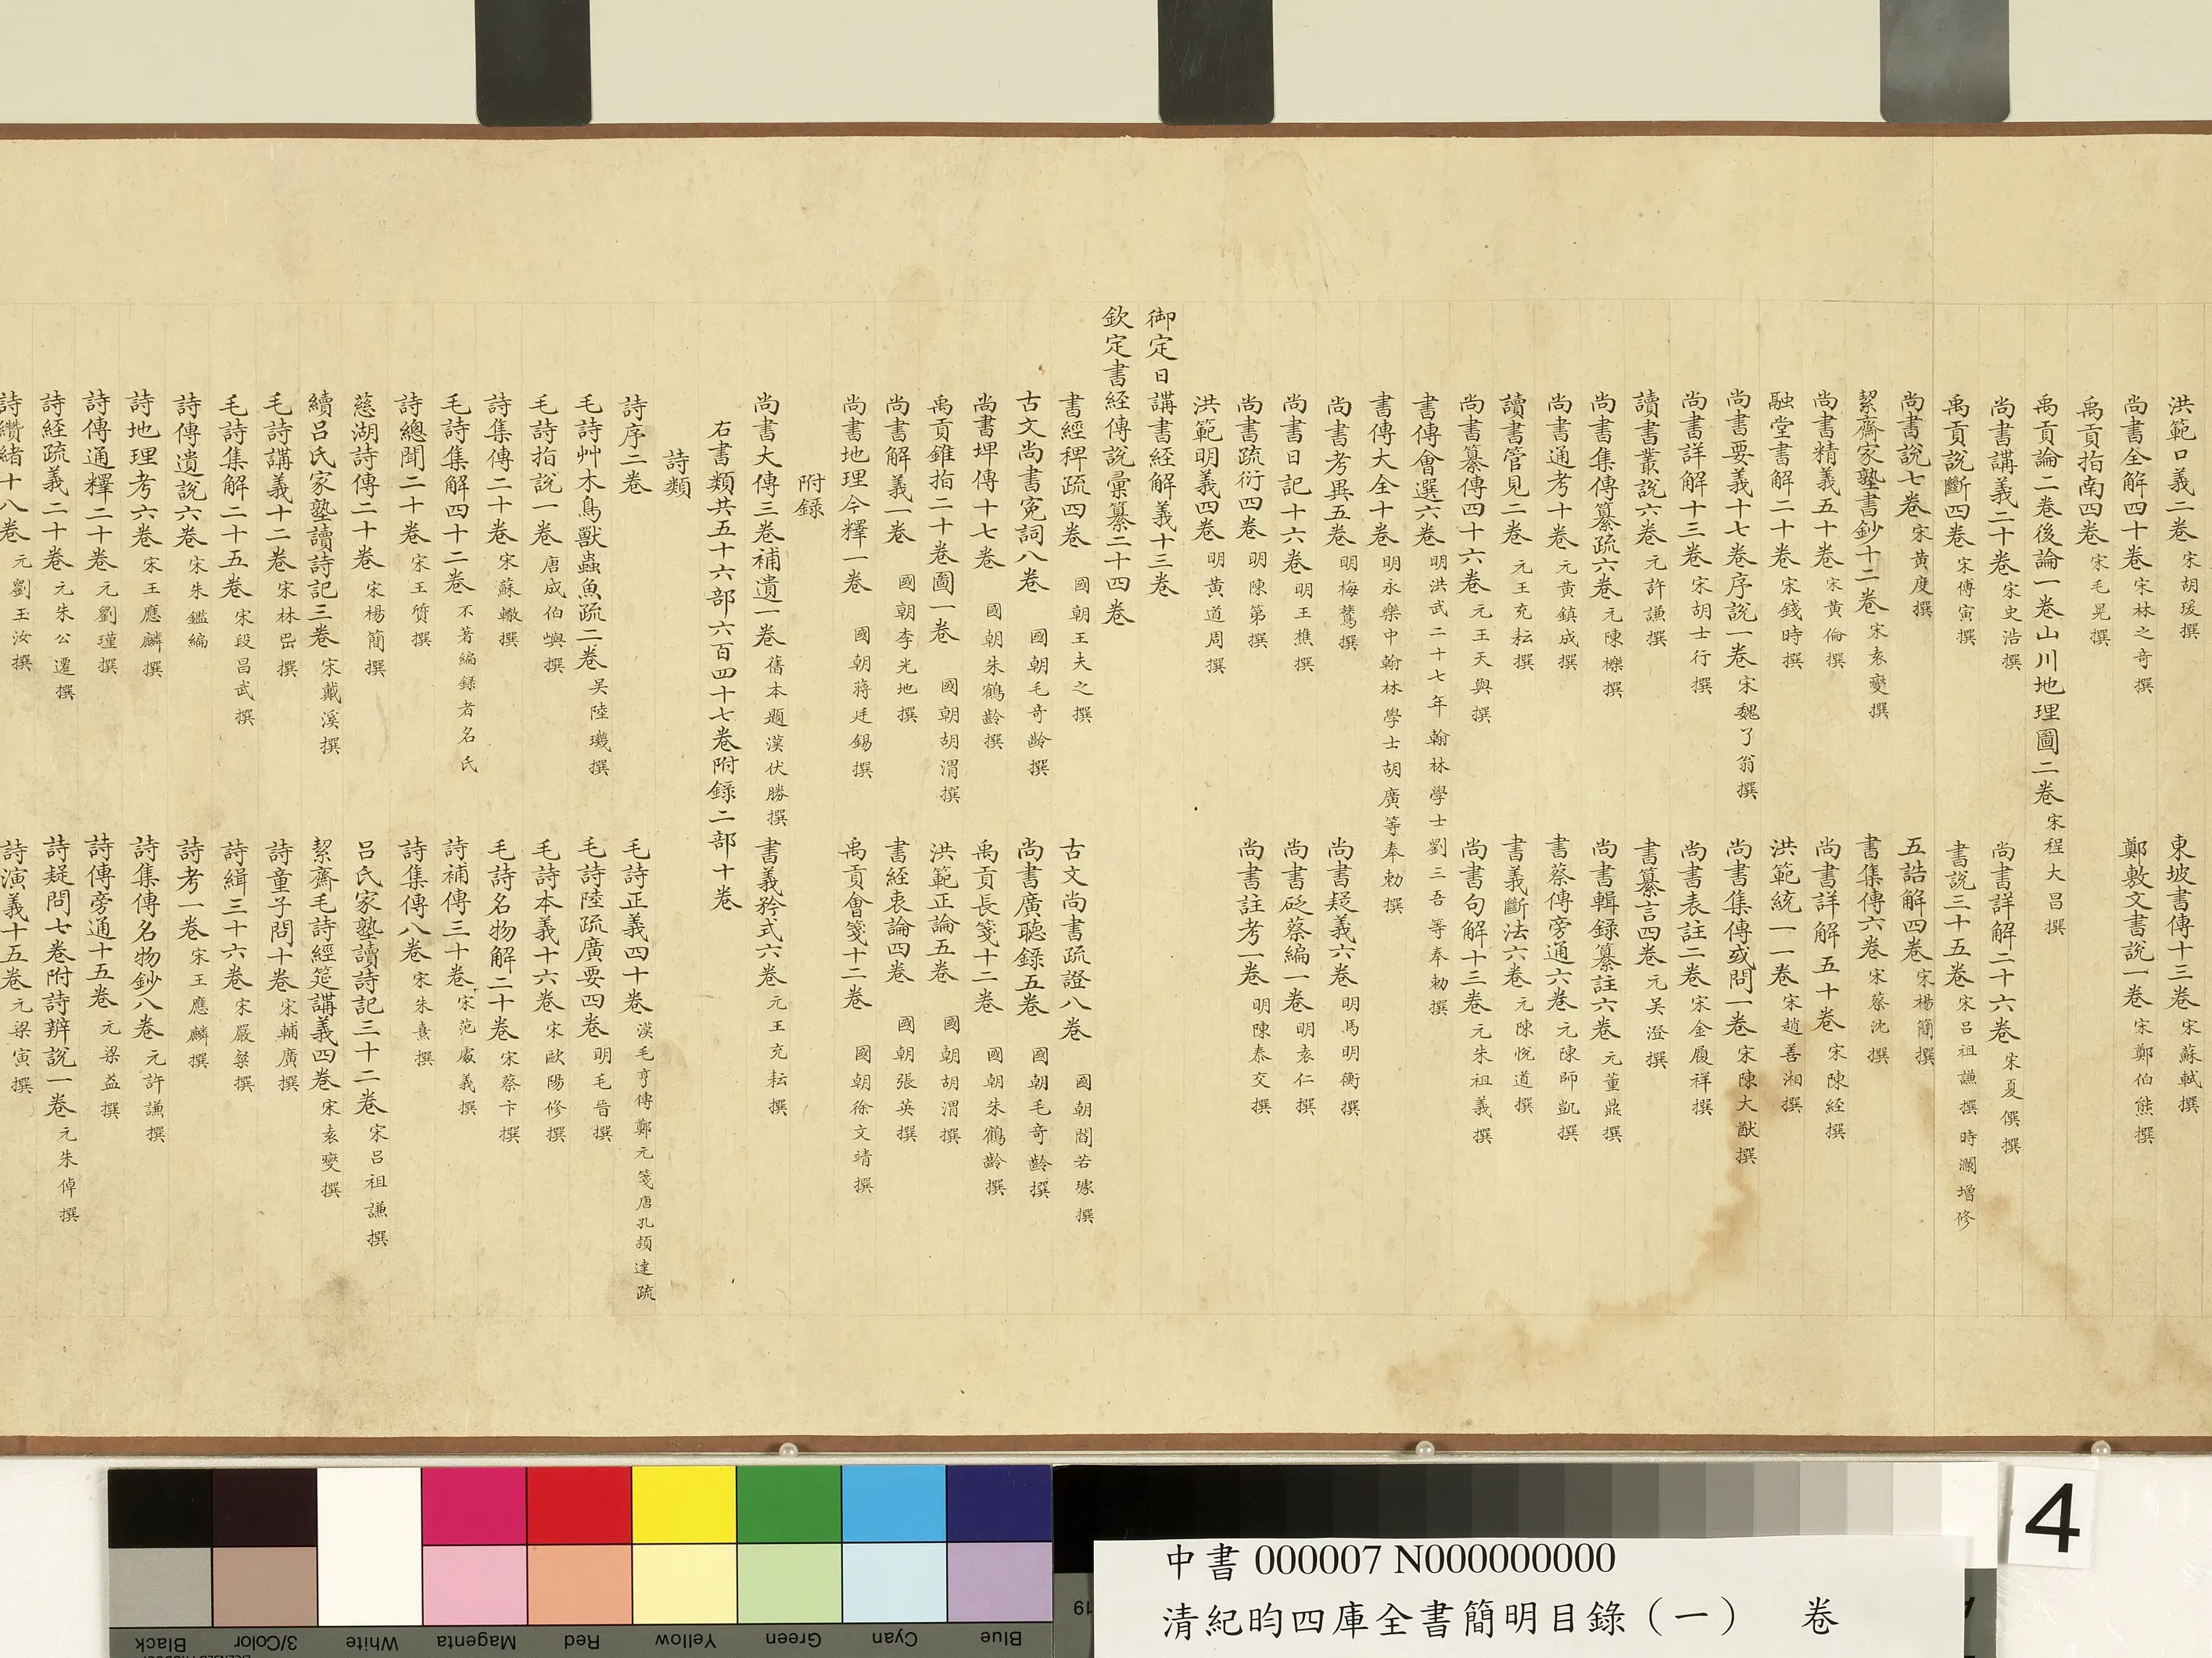 洪範口義二卷 宋胡瑗撰 東坡書傳十三卷 宋蘇軾撰
尚書全解四十卷 宋林之奇撰 鄭敷文書說一卷 宋鄭伯熊撰
禹貢指南四卷 宋毛晃撰
禹貢論二卷後論一卷山川地理圖二卷 宋程大昌撰
尚書講義二十卷 宋史浩撰 尚書詳解二十六卷 宋夏僎撰
禹貢說斷四卷 宋傅寅撰 書說三十五卷 宋呂祖謙撰時瀾增修
尚書說七卷 宋黃度撰 五誥解四卷 宋楊簡撰
絜齋家塾書鈔十二卷 宋袁燮撰 書集傳六卷 宋蔡沈撰
尚書精義五十卷 宋黃倫撰 尚書詳解五十卷 宋陳經撰
融堂書解二十卷 宋錢時撰 洪範統一一卷 宋趙善湘撰
尚書要義十七卷序說一卷 宋魏了翁撰 尚書集傳或問一卷 宋陳大猷撰
尚書詳解十三卷 宋胡士行撰 尚書表註二卷 宋金履祥撰
讀書叢說六卷 元許謙撰 書纂言四卷 元吳澄撰
尚書集傳纂疏六卷 元陳櫟撰 尚書輯錄纂註六卷 元董鼎撰
尚書通考十卷 元黃鎮成撰 書蔡傳旁通六卷 元陳師凱撰
讀書管見二卷 元王充耘撰 書義斷法六卷 元陳悅道撰
尚書纂傳四十六卷 元王天與撰 尚書句解十三卷 元朱祖義撰
書傳會選六卷 明洪武二十七年翰林學士劉三吾等奉勅撰
書傳大全十卷 明永樂中翰林學士胡廣等奉勅撰
尚書考異五卷 明梅鷟撰 尚書疑義六卷 明馬明衡撰
尚書日記十六卷 明王樵撰 尚書砭蔡編一卷 明袁仁撰
尚書疏衍四卷 明陳第撰 尚書註考一卷 明陳泰交撰
洪範明義四卷 明黃道周撰
御定日講書經解義十三卷
欽定書經傳說彙纂二十四卷
書經稗疏四卷 國朝王夫之撰 古文尚書疏證八卷 國朝閻若璩撰
古文尚書冤詞八卷 國朝毛奇齡撰 尚書廣聽錄五卷 國朝毛奇齡撰
尚書埤傳十七卷 國朝朱鶴齡撰 禹貢長箋十二卷 國朝朱鶴齡撰
禹貢錐指二十卷圖一卷 國朝胡渭撰 洪範正論五卷 國朝胡渭撰
尚書解義一卷 國朝李光地撰 書經衷論四卷 國朝張英撰
尚書地理今釋一卷 國朝蔣廷錫撰 禹貢會箋十二卷 國朝徐文靖撰
附錄
尚書大傳三卷補遺一卷 舊本題漢伏勝撰 書義矜式六卷 元王充耘撰
右書類共五十六部六百四十七卷附錄二部十卷
詩類
詩序二卷 毛詩正義四十卷 漢毛亨傳鄭元箋唐孔穎達疏
毛詩艸木鳥獸蟲魚疏二卷 吳陸璣撰 毛詩陸疏廣要四卷 明毛晉撰
毛詩指說一卷 唐成伯嶼撰 毛詩本義十六卷 宋歐陽修撰
詩集傳二十卷 宋蘇轍撰 毛詩名物解二十卷 宋蔡卞撰
毛詩集解四十二卷 不著編錄者名氏 詩補傳三十卷 宋范處義撰
詩總聞二十卷 宋王質撰 詩集傳八卷 宋朱熹撰
慈湖詩傳二十卷 宋楊簡撰 呂氏家塾讀詩記三十二卷 宋呂祖謙撰
續呂氏家塾讀詩記三卷 宋戴溪撰 絜齋毛詩經筵講義四卷 宋袁燮撰
毛詩講義十二卷 宋林岊撰 詩童子問十卷 宋輔廣撰
毛詩集解二十五卷 宋段昌武撰 詩緝三十六卷 宋嚴粲撰
詩傳遺說六卷 宋朱鑑編 詩考一卷 宋王應麟撰
詩地理考六卷 宋王應麟撰 詩集傳名物鈔八卷 元許謙撰
詩傳通釋二十卷 元劉瑾撰 詩傳旁通十五卷 元梁益撰
詩經疏義二十卷 元朱公遷撰 詩疑問七卷附詩辨說一卷 元朱倬撰
詩纘緒十八卷 元劉玉汝撰 詩演義十五卷 元梁寅撰
4
中書 000007 N000000000
清紀昀四庫全書簡明目錄（一） 卷
Black
3/Color
White
Magenta
Red
Yellow
Green
Cyan
Blue
19